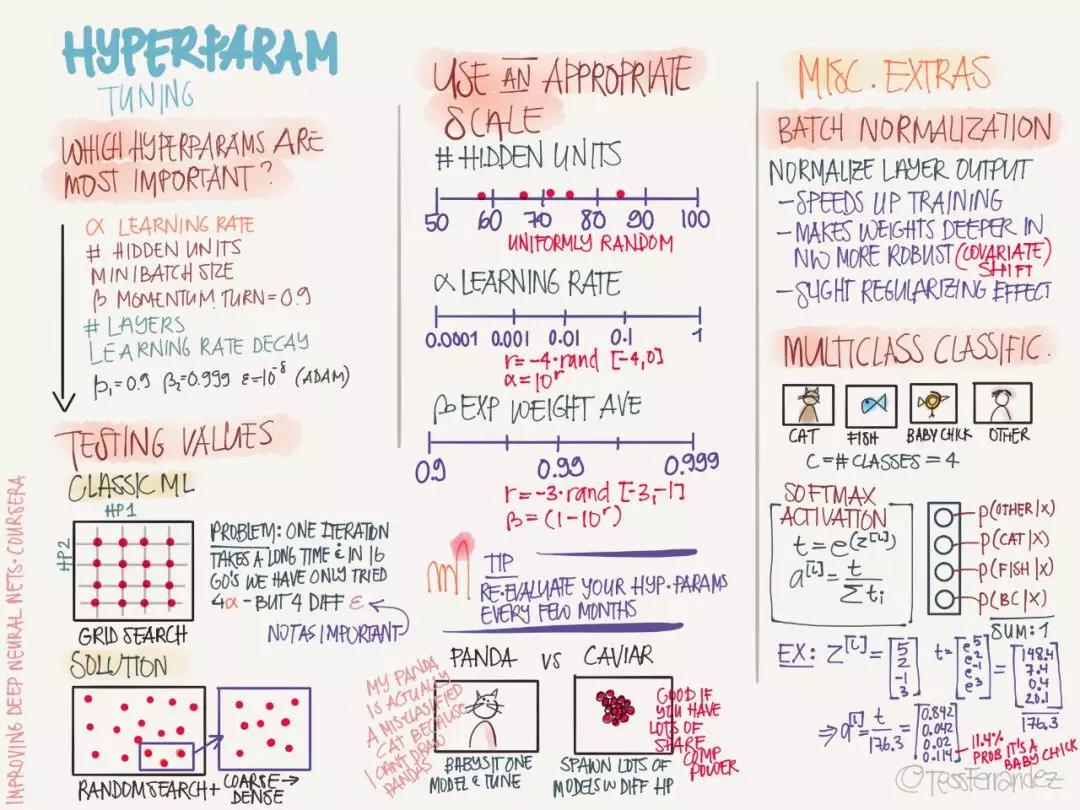 HYPERPARAM
TUNING
WHICH HYPERPARAMS ARE
MOST IMPORTANT?
α LEARNING RATE
# HIDDEN UNITS
MINIBATCH SIZE
β MOMENTUM TURN = 0.9
# LAYERS
LEARNING RATE DECAY
β₁=0.9 β₂=0.999 ε=10⁻⁸ (ADAM)
TESTING VALUES
CLASSIC ML
HP1
HP2
GRID SEARCH
PROBLEM: ONE ITERATION
TAKES A LONG TIME & IN 16
GO'S WE HAVE ONLY TRIED
4α - BUT 4 DIFF ε
NOT AS IMPORTANT
SOLUTION
RANDOM SEARCH + COARSE →
DENSE
IMPROVING DEEP NEURAL NETS · COURSERA
USE AN APPROPRIATE
SCALE
# HIDDEN UNITS
50 60 70 80 90 100
UNIFORMLY RANDOM
α LEARNING RATE
0.0001 0.001 0.01 0.1 1
r=-4·rand [-4,0]
α=10^r
β EXP WEIGHT AVE
0.9 0.99 0.999
r=-3·rand [-3,-1]
β = (1-10^r)
TIP
RE-EVALUATE YOUR HYP.PARAMS
EVERY FEW MONTHS
PANDA VS CAVIAR
MY PANDA
IS ACTUALLY
A MISCLASSIFIED
CAT BECAUSE
I CANT DRAW
PANDAS
BABYSIT ONE
MODEL & TUNE
GOOD IF
YOU HAVE
LOTS OF
SHARE
COMP
POWER
SPAWN LOTS OF
MODELS W DIFF HP
MISC. EXTRAS
BATCH NORMALIZATION
NORMALIZE LAYER OUTPUT
- SPEEDS UP TRAINING
- MAKES WEIGHTS DEEPER IN
NW MORE ROBUST (COVARIATE)
SHIFT
- SLIGHT REGULARIZING EFFECT
MULTICLASS CLASSIFIC.
CAT FISH BABY CHICK OTHER
C = # CLASSES = 4
SOFTMAX
ACTIVATION
t = e^(z^[L])
a^[L] = t / Σtᵢ
p(OTHER|X)
p(CAT|X)
p(FISH|X)
p(BC|X)
SUM: 1
EX: Z^[L] = [5 2 -1 3] t = [e^5 e^2 e^-1 e^3] = [148.4 7.4 0.4 20.1]
176.3
⇒ a^[L] = t / 176.3 = [0.842 0.042 0.02 0.114]
11.4%
PROB IT'S A
BABY CHICK
©TessFerrandez